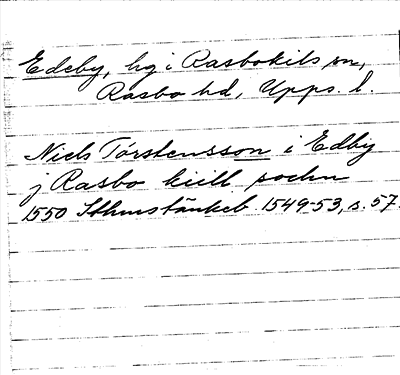 Edeby, hg i Rasbokils sn,
Rasbo hd, Upps. l.
Niels Torstensson i Edby
j Rasbo kiill sochn
1550 Sthmstänkeb. 1549-53, s. 57.